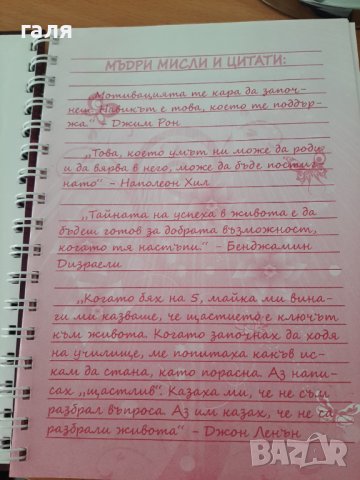 галя
МЪДРИ МИСЛИ И ЦИТАТИ:
„Мотивацията те кара да започ-
неш. Навикът е това, което те поддър-
жа.“ - Джим Рон
„Това, което умът ни може да роди
и да вярва в него, може да бъде постиг-
нато“ - Наполеон Хил
„Тайната на успеха в живота е да
бъдеш готов за добрата възможност,
когато тя настъпи.“ - Бенджамин
Дизраели
„Когато бях на 5, майка ми вина-
ги ми казваше, че щастието е ключът
към живота. Когато започнах да ходя
на училище, ме попитаха какъв ис-
кам да стана, като порасна. Аз напи-
сах „щастлив“. Казаха ми, че не съм
разбрал въпроса. Аз им казах, че не са
разбрали живота“ - Джон Ленън
bazar.bg